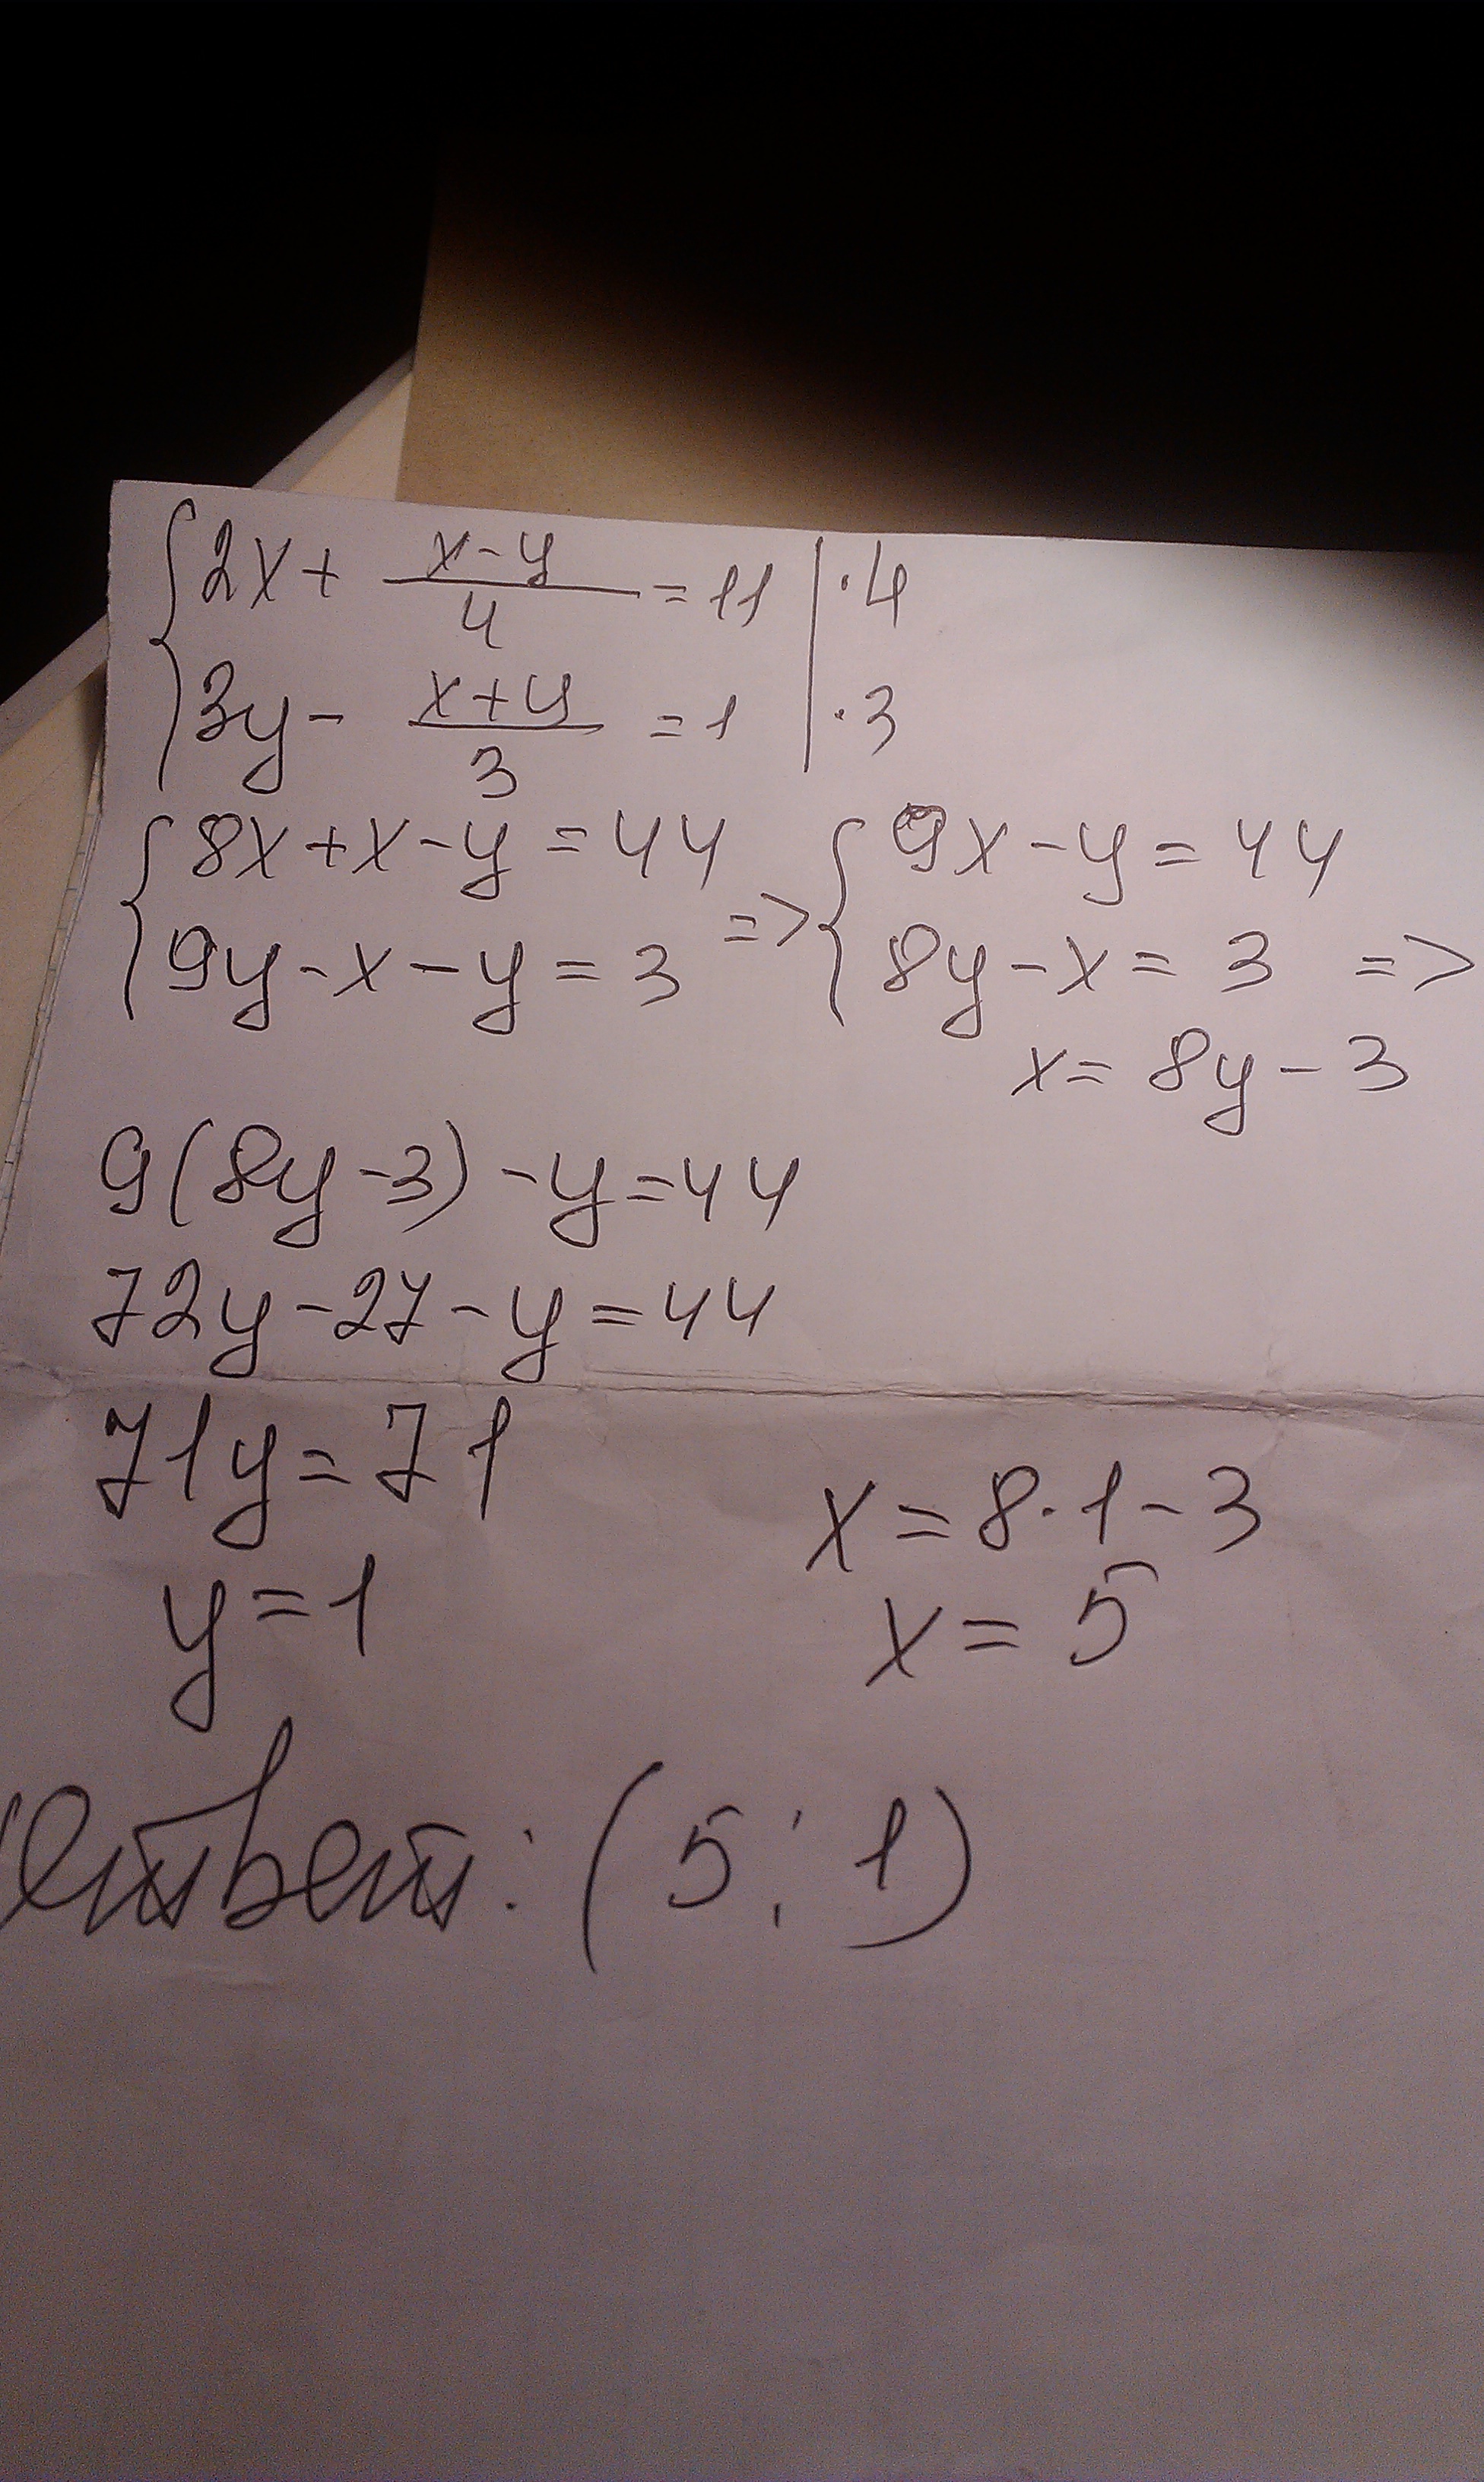 {2x + (x-y)/4 = 11 | ·4
{3y - (x+y)/3 = 1 | ·3
{8x+x-y=44 => {9x-y=44
{9y-x-y=3 {8y-x=3 =>
x=8y-3
9(8y-3)-y=44
72y-27-y=44
71y=71
x=8·1-3
y=1
x=5
Ответ: (5; 1)